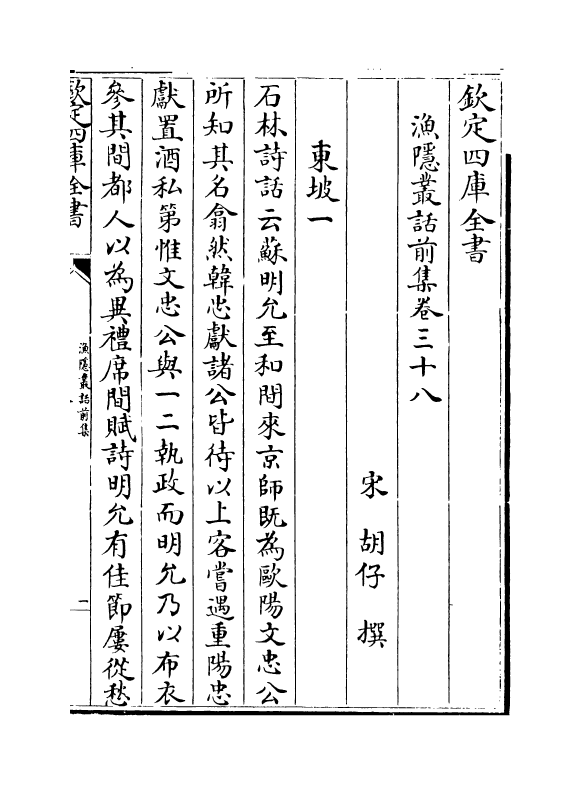 欽定四庫全書
漁隱叢話前集卷三十八
宋 胡仔 撰
東坡一
石林詩話云蘇明允至和間來京師既為歐陽文忠公
所知其名翕然韓忠獻諸公皆待以上客嘗遇重陽忠
獻置酒私第惟文忠公與一二執政而明允乃以布衣
參其間都人以為異禮席間賦詩明允有佳節屢從愁
欽定四庫全書
漁隱叢話前集
一